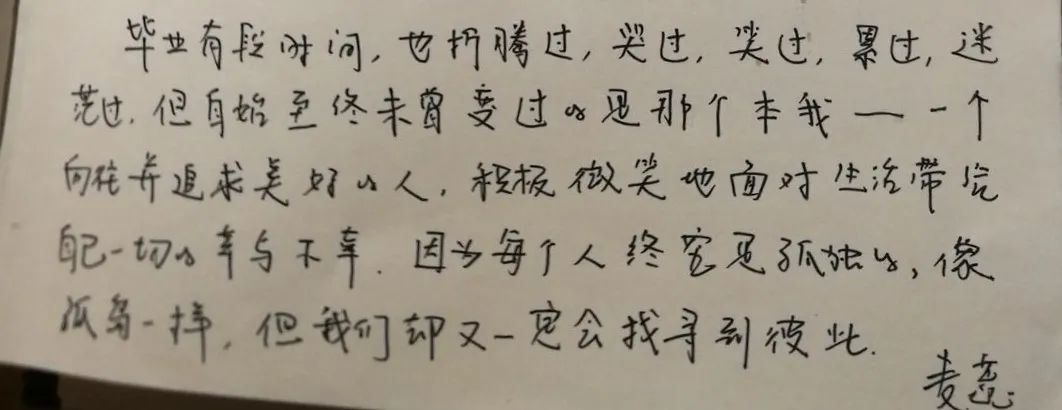 毕业有段时间,也折腾过,哭过,笑过,累过,迷
茫过.但自始至终未曾变过的是那个本我——一个
向往并追求美好的人.积极微笑地面对生活带给
自己一切的幸与不幸.因为每个人终究是孤独的,像
孤岛一样,但我们却又一定会找寻到彼此.
麦蕊